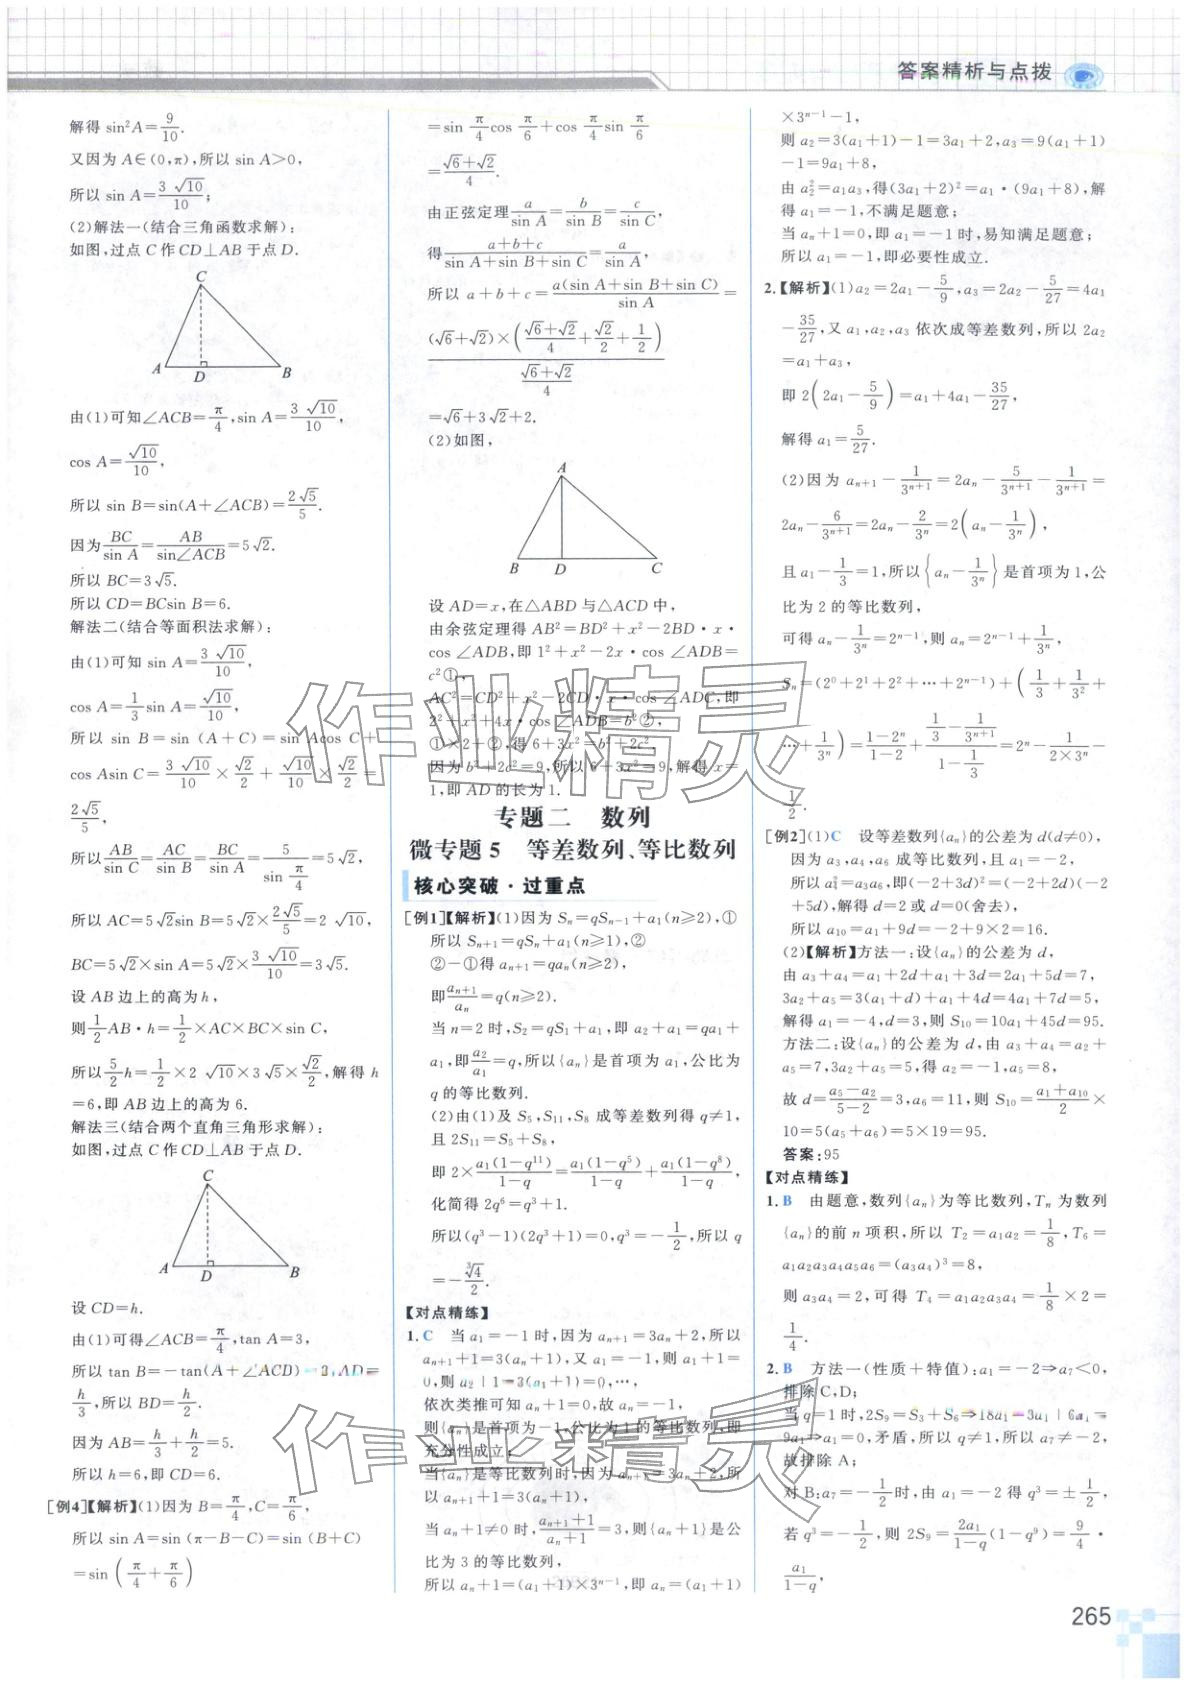 答案精析与点拨
解得 sin²A=9/10.
又因为 A∈(0,π),所以 sin A>0,
所以 sin A=3√10/10;
(2)解法一(结合三角函数求解):
如图,过点 C 作 CD⊥AB 于点 D.
C
A D B
由(1)可知∠ACB=π/4,sin A=3√10/10,
cos A=√10/10,
所以 sin B=sin(A+∠ACB)=2√5/5.
因为BC/sin A=AB/sin∠ACB=5√2.
所以 BC=3√5.
所以 CD=BCsin B=6.
解法二(结合等面积法求解):
由(1)可知 sin A=3√10/10,
cos A=1/3 sin A=√10/10,
所以 sin B=sin (A+C)=sin Acos C+
cos Asin C=3√10/10×√2/2+√10/10×√2/2=
2√5/5,
所以AB/sin C=AC/sin B=BC/sin A=5/sin π/4=5√2,
所以 AC=5√2sin B=5√2×2√5/5=2√10,
BC=5√2×sin A=5√2×3√10/10=3√5.
设 AB 边上的高为 h,
则1/2AB·h=1/2×AC×BC×sin C,
所以5/2h=1/2×2√10×3√5×√2/2,解得 h
=6,即 AB 边上的高为 6.
解法三(结合两个直角三角形求解):
如图,过点 C 作 CD⊥AB 于点 D.
C
A D B
设 CD=h.
由(1)可得∠ACB=π/4,tan A=3,
所以 tan B=-tan(A+∠ACD)
h/3,所以 BD=h/2.
因为 AB=h/3+h/2=5.
所以 h=6,即 CD=6.
[例4]【解析】(1)因为 B=π/4,C=π/6,
所以 sin A=sin (π-B-C)=sin (B+C)
=sin (π/4+π/6)
=sin π/4 cos π/6+cos π/4 sin π/6
=(√6+√2)/4.
由正弦定理a/sin A=b/sin B=c/sin C,
得(a+b+c)/(sin A+sin B+sin C)=a/sin A,
所以 a+b+c=a(sin A+sin B+sin C)/sin A=
(√6+√2)×((√6+√2)/4+√2/2+1/2)/((√6+√2)/4)
=√6+3√2+2.
(2)如图,
A
B D C
设 AD=x,在△ABD 与△ACD 中,
由余弦定理得 AB²=BD²+x²-2BD·x·
cos ∠ADB,即 1²+x²-2x·cos ∠ADB=
c²①,
AC²=CD²+x²-2CD·x·cos∠ADC,即
2²+x²+4x·cos∠ADB=b²②,
①×2+②,得 6+3x²=b²+2c²,
因为 b²+2c²=9,所以 6+3x²=9,解得 x=
1,即 AD 的长为 1.
专题二 数列
微专题 5 等差数列、等比数列
核心突破·过重点
[例1]【解析】(1)因为 Sₙ=qSₙ₋₁+a₁(n≥2),①
所以 Sₙ₊₁=qSₙ+a₁(n≥1),②
②-①得 aₙ₊₁=qaₙ(n≥2),
即aₙ₊₁/aₙ=q(n≥2).
当 n=2 时,S₂=qS₁+a₁,即 a₂+a₁=qa₁+
a₁,即a₂/a₁=q,所以{aₙ}是首项为 a₁,公比为
q 的等比数列.
(2)由(1)及 S₅,S₁₁,S₈ 成等差数列得 q≠1,
且 2S₁₁=S₅+S₈,
即 2×a₁(1-q¹¹)/(1-q)=a₁(1-q⁵)/(1-q)+a₁(1-q⁸)/(1-q),
化简得 2q⁶=q³+1.
所以(q³-1)(2q³+1)=0,q³=-1/2,所以 q
=-∛4/2.
【对点精练】
1. C 当 a₁=-1 时,因为 aₙ₊₁=3aₙ+2,所以
aₙ₊₁+1=3(aₙ+1),又 a₁=-1,则 a₁+1=
0,则 a₂+1=3(a₁+1)=0,…,
依次类推可知 aₙ+1=0,故 aₙ=-1,
则{aₙ}是首项为-1,公比为 1 的等比数列,即
充分性成立;
当{aₙ}是等比数列时,因为 aₙ₊₁=3aₙ+2,所
以 aₙ₊₁+1=3(aₙ+1),
当 aₙ+1≠0 时,(aₙ₊₁+1)/(aₙ+1)=3,则{aₙ+1}是公
比为 3 的等比数列,
所以 aₙ+1=(a₁+1)×3ⁿ⁻¹,即 aₙ=(a₁+1)
×3ⁿ⁻¹-1,
则 a₂=3(a₁+1)-1=3a₁+2,a₃=9(a₁+1)
-1=9a₁+8,
由 a₂²=a₁a₃,得(3a₁+2)²=a₁·(9a₁+8),解
得 a₁=-1,不满足题意;
当 aₙ+1=0,即 a₁=-1 时,易知满足题意;
所以 a₁=-1,即必要性成立.
2.【解析】(1)a₂=2a₁-5/9,a₃=2a₂-5/27=4a₁
-35/27,又 a₁,a₂,a₃ 依次成等差数列,所以 2a₂
=a₁+a₃,
即 2(2a₁-5/9)=a₁+4a₁-35/27,
解得 a₁=5/27.
(2)因为 aₙ₊₁-1/3ⁿ⁺¹=2aₙ-5/3ⁿ⁺¹-1/3ⁿ⁺¹=
2aₙ-6/3ⁿ⁺¹=2aₙ-2/3ⁿ=2(aₙ-1/3ⁿ),
且 a₁-1/3=1,所以{aₙ-1/3ⁿ}是首项为 1,公
比为 2 的等比数列,
可得 aₙ-1/3ⁿ=2ⁿ⁻¹,则 aₙ=2ⁿ⁻¹+1/3ⁿ,
Sₙ=(2⁰+2¹+2²+…+2ⁿ⁻¹)+(1/3+1/3²+
…+1/3ⁿ)=(1-2ⁿ)/(1-2)+(1/3-1/3ⁿ⁺¹)/(1-1/3)=2ⁿ-1/(2×3ⁿ)-
1/2.
[例2](1)C 设等差数列{aₙ}的公差为 d(d≠0),
因为 a₃,a₄,a₆ 成等比数列,且 a₁=-2,
所以 a₄²=a₃a₆,即(-2+3d)²=(-2+2d)(-2
+5d),解得 d=2 或 d=0(舍去),
所以 a₁₀=a₁+9d=-2+9×2=16.
(2)【解析】方法一:设{aₙ}的公差为 d,
由 a₃+a₄=a₁+2d+a₁+3d=2a₁+5d=7,
3a₂+a₅=3(a₁+d)+a₁+4d=4a₁+7d=5,
解得 a₁=-4,d=3,则 S₁₀=10a₁+45d=95.
方法二:设{aₙ}的公差为 d,由 a₃+a₄=a₂+
a₅=7,3a₂+a₅=5,得 a₂=-1,a₅=8,
故 d=(a₅-a₂)/(5-2)=3,a₆=11,则 S₁₀=(a₁+a₁₀)/2×
10=5(a₅+a₆)=5×19=95.
答案:95
【对点精练】
1. B 由题意,数列{aₙ}为等比数列,Tₙ 为数列
{aₙ}的前 n 项积,所以 T₂=a₁a₂=1/8,T₆=
a₁a₂a₃a₄a₅a₆=(a₃a₄)³=8,
则 a₃a₄=2,可得 T₄=a₁a₂a₃a₄=1/8×2=
1/4.
2. B 方法一(性质+特值):a₁=-2⇒a₇<0,
排除 C,D;
当 q=1 时,2S₉=S₃+S₆⇒18a₁=3a₁+6a₁=
9a₁⇒a₁=0,矛盾,所以 q≠1,所以 a₇≠-2,
故排除 A;
对 B:a₇=-1/2时,由 a₁=-2 得 q³=±1/2,
若 q³=-1/2,则 2S₉=2a₁/(1-q)(1-q⁹)=9/4·
a₁/(1-q),
265
作业精灵
作业精灵